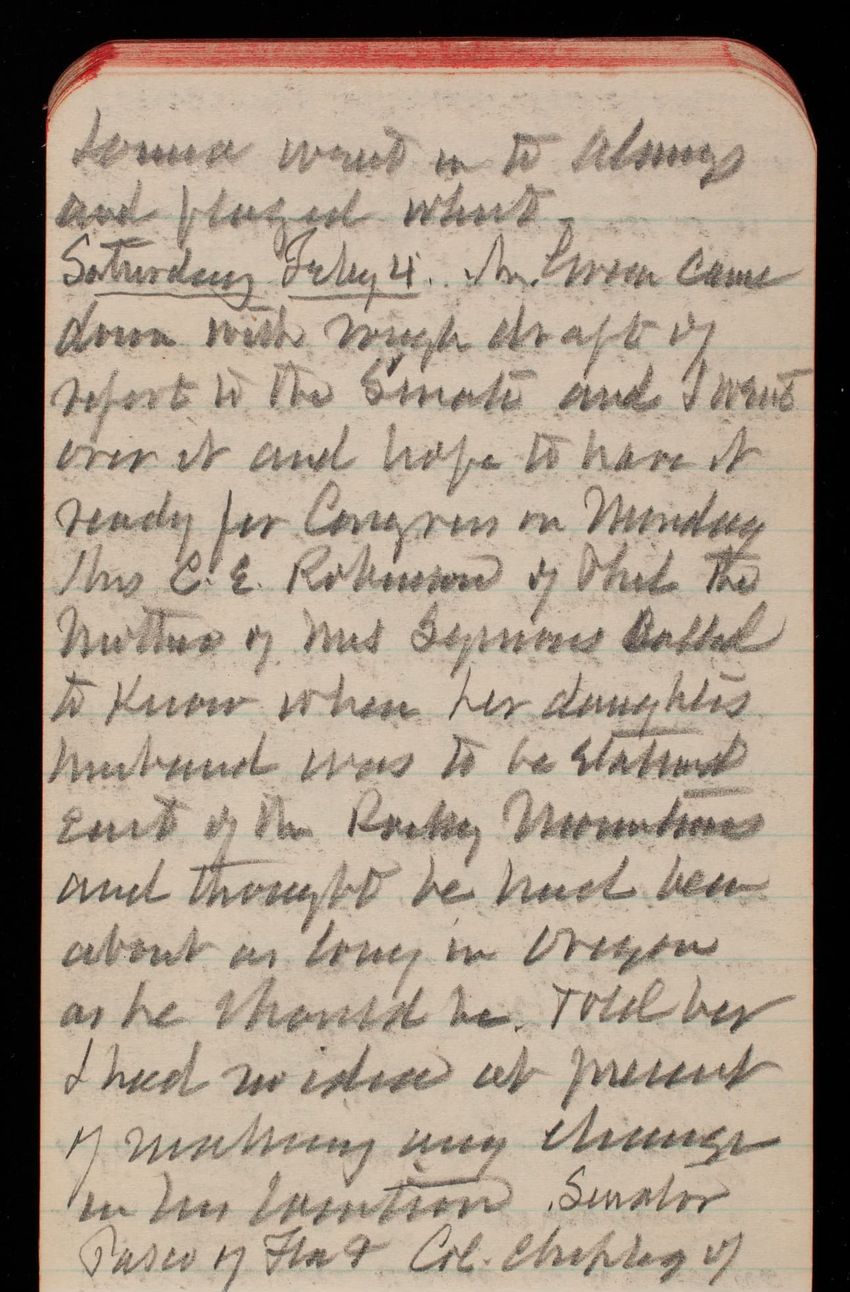 Donna went in to Almys
and played whist.
Saturday Feby 4. Mr. Green came
down with rough draft of
report to the Senate and I went
over it and hope to have it
ready for Congress on Monday
Mrs C. E. Robinson of Phil the
Mother of Mrs Seymour Called
to Know when her daughters
husband was to be stationed
East of the Rocky Mountains
and thought he had been
about as long in Oregon
as he should be. Told her
I had no idea at present
of making any change
in his location. Senator
Pasco of Fla & Col. Chipley of